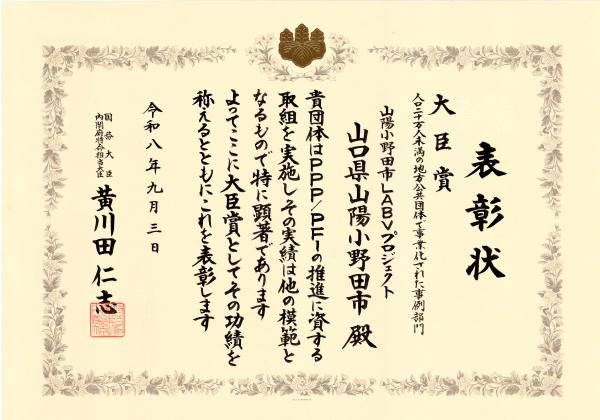 表彰状
人口二十万人未満の地方公共団体で事業化された事例部門
大臣賞
山陽小野田市LABVプロジェクト
山口県山陽小野田市 殿
貴団体はPPP/PFIの推進に資する
取組を実施しその実績は他の模範と
なるもので特に顕著であります
よってここに大臣賞としてその功績を
称えるとともにこれを表彰します
令和八年九月三日
国務大臣
内閣府特命担当大臣
黄川田仁志